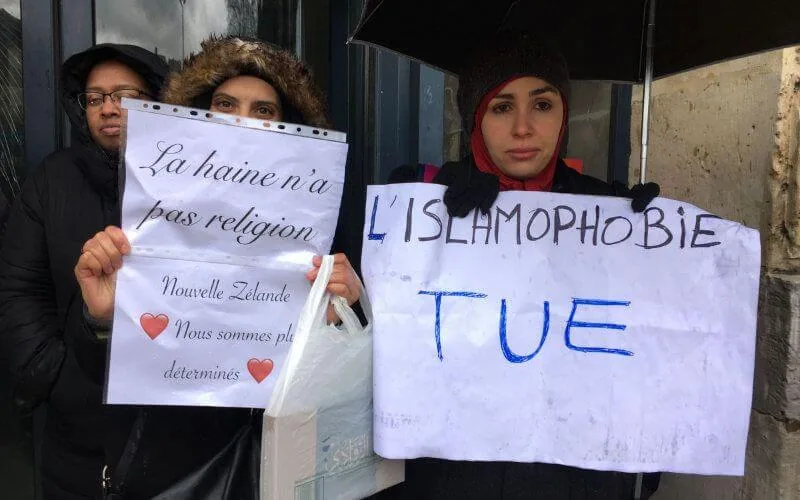 La haine n'a
pas religion
Nouvelle Zélande
Nous sommes
déterminés
L'ISLAMOPHOBiE
TUE